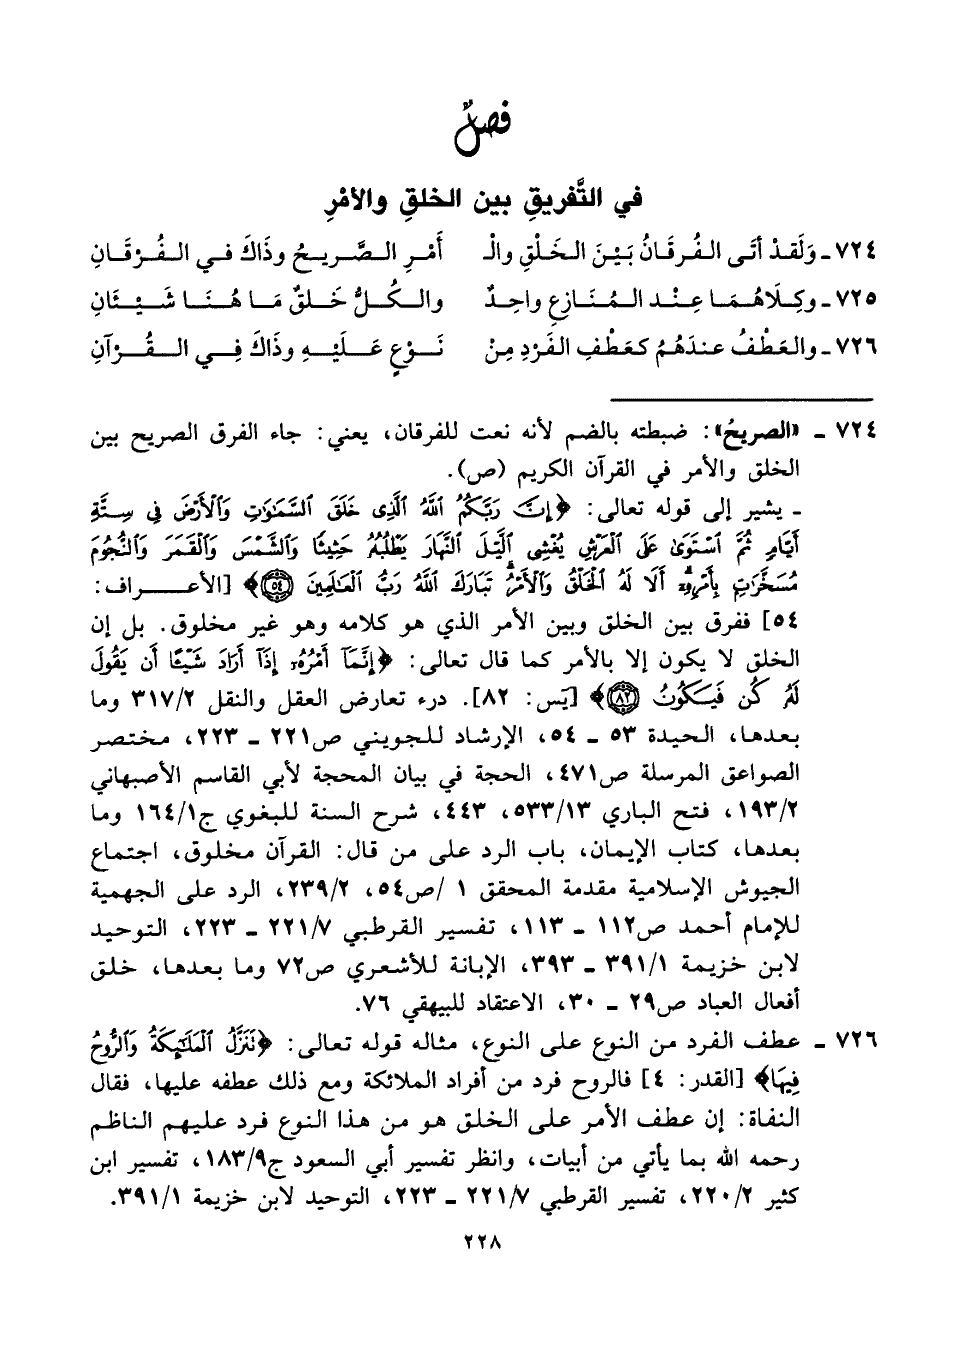 فصلٌ
في التَّفريقِ بين الخلقِ والأمْرِ
٧٢٤ ـ وَلَقدْ أتَى الفُرقَانُ بَيْنَ الخَلْقِ والْـ أَمْرِ الصَّريحُ وذَاكَ في الفُرْقَانِ
٧٢٥ ـ وكِلَاهُمَا عِنْد المُنَازعِ واحِدٌ والكُلُّ خَلقٌ مَا هُنَا شَيْئَانِ
٧٢٦ ـ والعَطْفُ عندَهُمُ كعَطْفِ الفَرْدِ مِنْ نَوْعٍ عَلَيْهِ وذَاكَ فِي القُرْآنِ
٧٢٤ ـ «الصريحُ»: ضبطته بالضم لأنه نعت للفرقان، يعني: جاء الفرق الصريح بين
الخلق والأمر في القرآن الكريم (ص).
ـ يشير إلى قوله تعالى: ﴿إِنَّ رَبَّكُمُ اللَّهُ الَّذِى خَلَقَ السَّمَٰوَٰتِ وَالْأَرْضَ فِى سِتَّةِ
أَيَّامٍ ثُمَّ اسْتَوَىٰ عَلَى الْعَرْشِ يُغْشِى الَّيْلَ النَّهَارَ يَطْلُبُهُ حَثِيثًا وَالشَّمْسَ وَالْقَمَرَ وَالنُّجُومَ
مُسَخَّرَٰتٍ بِأَمْرِهِۦٓ أَلَا لَهُ الْخَلْقُ وَالْأَمْرُ تَبَارَكَ اللَّهُ رَبُّ الْعَٰلَمِينَ ٥٤﴾ [الأعراف:
٥٤] ففرق بين الخلق وبين الأمر الذي هو كلامه وهو غير مخلوق. بل إن
الخلق لا يكون إلا بالأمر كما قال تعالى: ﴿إِنَّمَآ أَمْرُهُۥٓ إِذَآ أَرَادَ شَيْـًٔا أَن يَقُولَ
لَهُۥ كُن فَيَكُونُ ٨٢﴾ [يَس: ٨٢]. درء تعارض العقل والنقل ٣١٧/٢ وما
بعدها، الحيدة ٥٣ ـ ٥٤، الإرشاد للجويني ص٢٢١ ـ ٢٢٣، مختصر
الصواعق المرسلة ص٤٧١، الحجة في بيان المحجة لأبي القاسم الأصبهاني
١٩٣/٢، فتح الباري ٥٣٣/١٣، ٤٤٣، شرح السنة للبغوي ج١٦٤/١ وما
بعدها، كتاب الإيمان، باب الرد على من قال: القرآن مخلوق، اجتماع
الجيوش الإسلامية مقدمة المحقق ١ /ص٥٤، ٢٣٩/٢، الرد على الجهمية
للإمام أحمد ص١١٢ ـ ١١٣، تفسير القرطبي ٢٢١/٧ ـ ٢٢٣، التوحيد
لابن خزيمة ٣٩١/١ ـ ٣٩٣، الإبانة للأشعري ص٧٢ وما بعدها، خلق
أفعال العباد ص٢٩ ـ ٣٠، الاعتقاد للبيهقي ٧٦.
٧٢٦ ـ عطف الفرد من النوع على النوع، مثاله قوله تعالى: ﴿نَنَزَّلُ الْمَلَٰٓئِكَةُ وَالرُّوحُ
فِيهَا﴾ [القدر: ٤] فالروح فرد من أفراد الملائكة ومع ذلك عطفه عليها، فقال
النفاة: إن عطف الأمر على الخلق هو من هذا النوع فرد عليهم الناظم
رحمه الله بما يأتي من أبيات، وانظر تفسير أبي السعود ج١٨٣/٩، تفسير ابن
كثير ٢٢٠/٢، تفسير القرطبي ٢٢١/٧ ـ ٢٢٣، التوحيد لابن خزيمة ٣٩١/١.
٢٢٨